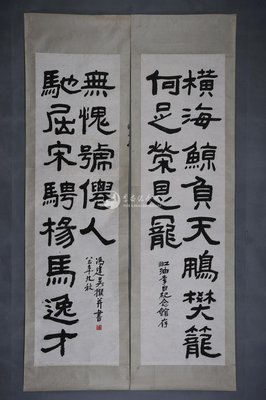 橫海鯨負天鵬樊籠
何足榮恩寵
江油李白紀念館存
馳屈宋騁揚馬逸才
無愧號僊人
馮建吳撰并書
年九秋